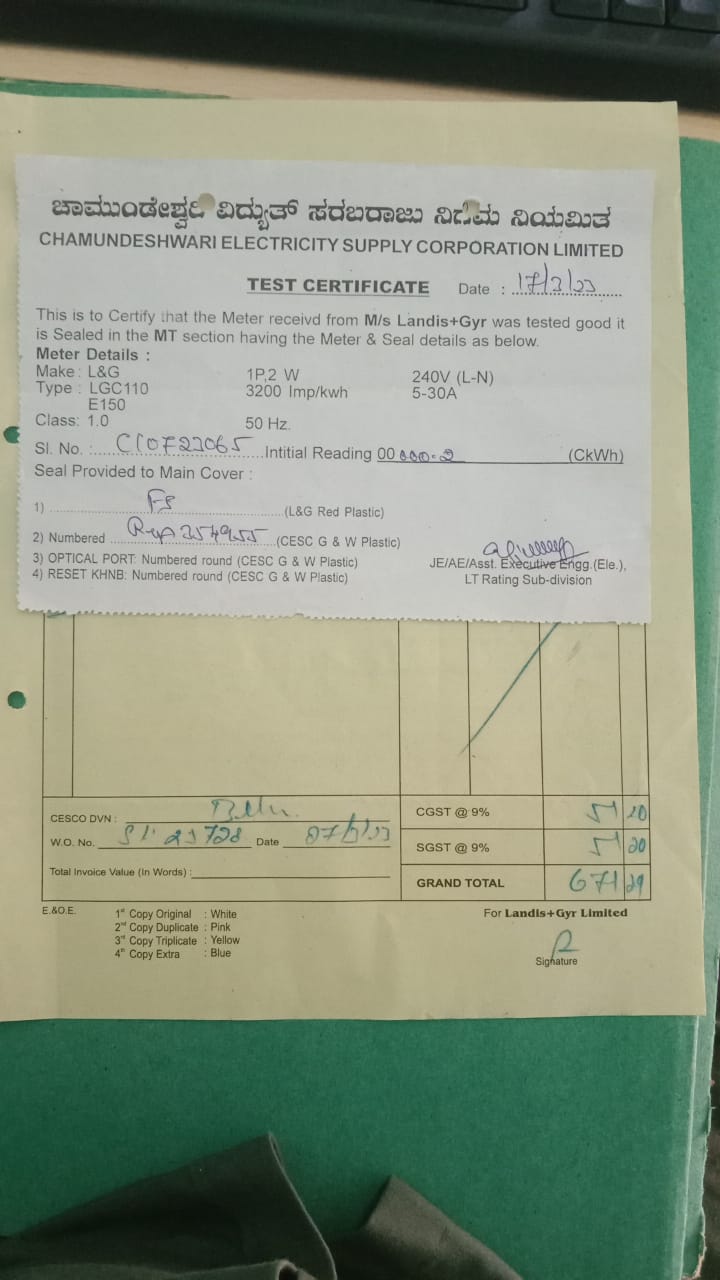 ಚಾಮುಂಡೇಶ್ವರಿ ವಿದ್ಯುತ್ ಸರಬರಾಜು ನಿಗಮ ನಿಯಮಿತ
CHAMUNDESHWARI ELECTRICITY SUPPLY CORPORATION LIMITED
TEST CERTIFICATE Date : 17/3/23
This is to Certify that the Meter receivd from M/s Landis+Gyr was tested good it
is Sealed in the MT section having the Meter & Seal details as below.
Meter Details :
Make : L&G 1P,2 W 240V (L-N)
Type : LGC110 3200 Imp/kwh 5-30A
E150
Class: 1.0 50 Hz.
Sl. No. : C10723065 Intitial Reading 00 000.2 (CkWh)
Seal Provided to Main Cover :
1) FS (L&G Red Plastic)
2) Numbered (CESC G & W Plastic)
3) OPTICAL PORT: Numbered round (CESC G & W Plastic)
4) RESET KHNB: Numbered round (CESC G & W Plastic)
JE/AE/Asst. Executive Engg.(Ele.),
LT Rating Sub-division
CESCO DVN :
CGST @ 9% 51 20
W.O. No. Date
SGST @ 9% 51 20
Total Invoice Value (In Words) :
GRAND TOTAL 671 29
E.&O.E.
1st Copy Original : White
2nd Copy Duplicate : Pink
3rd Copy Triplicate : Yellow
4th Copy Extra : Blue
For Landis+Gyr Limited
Signature